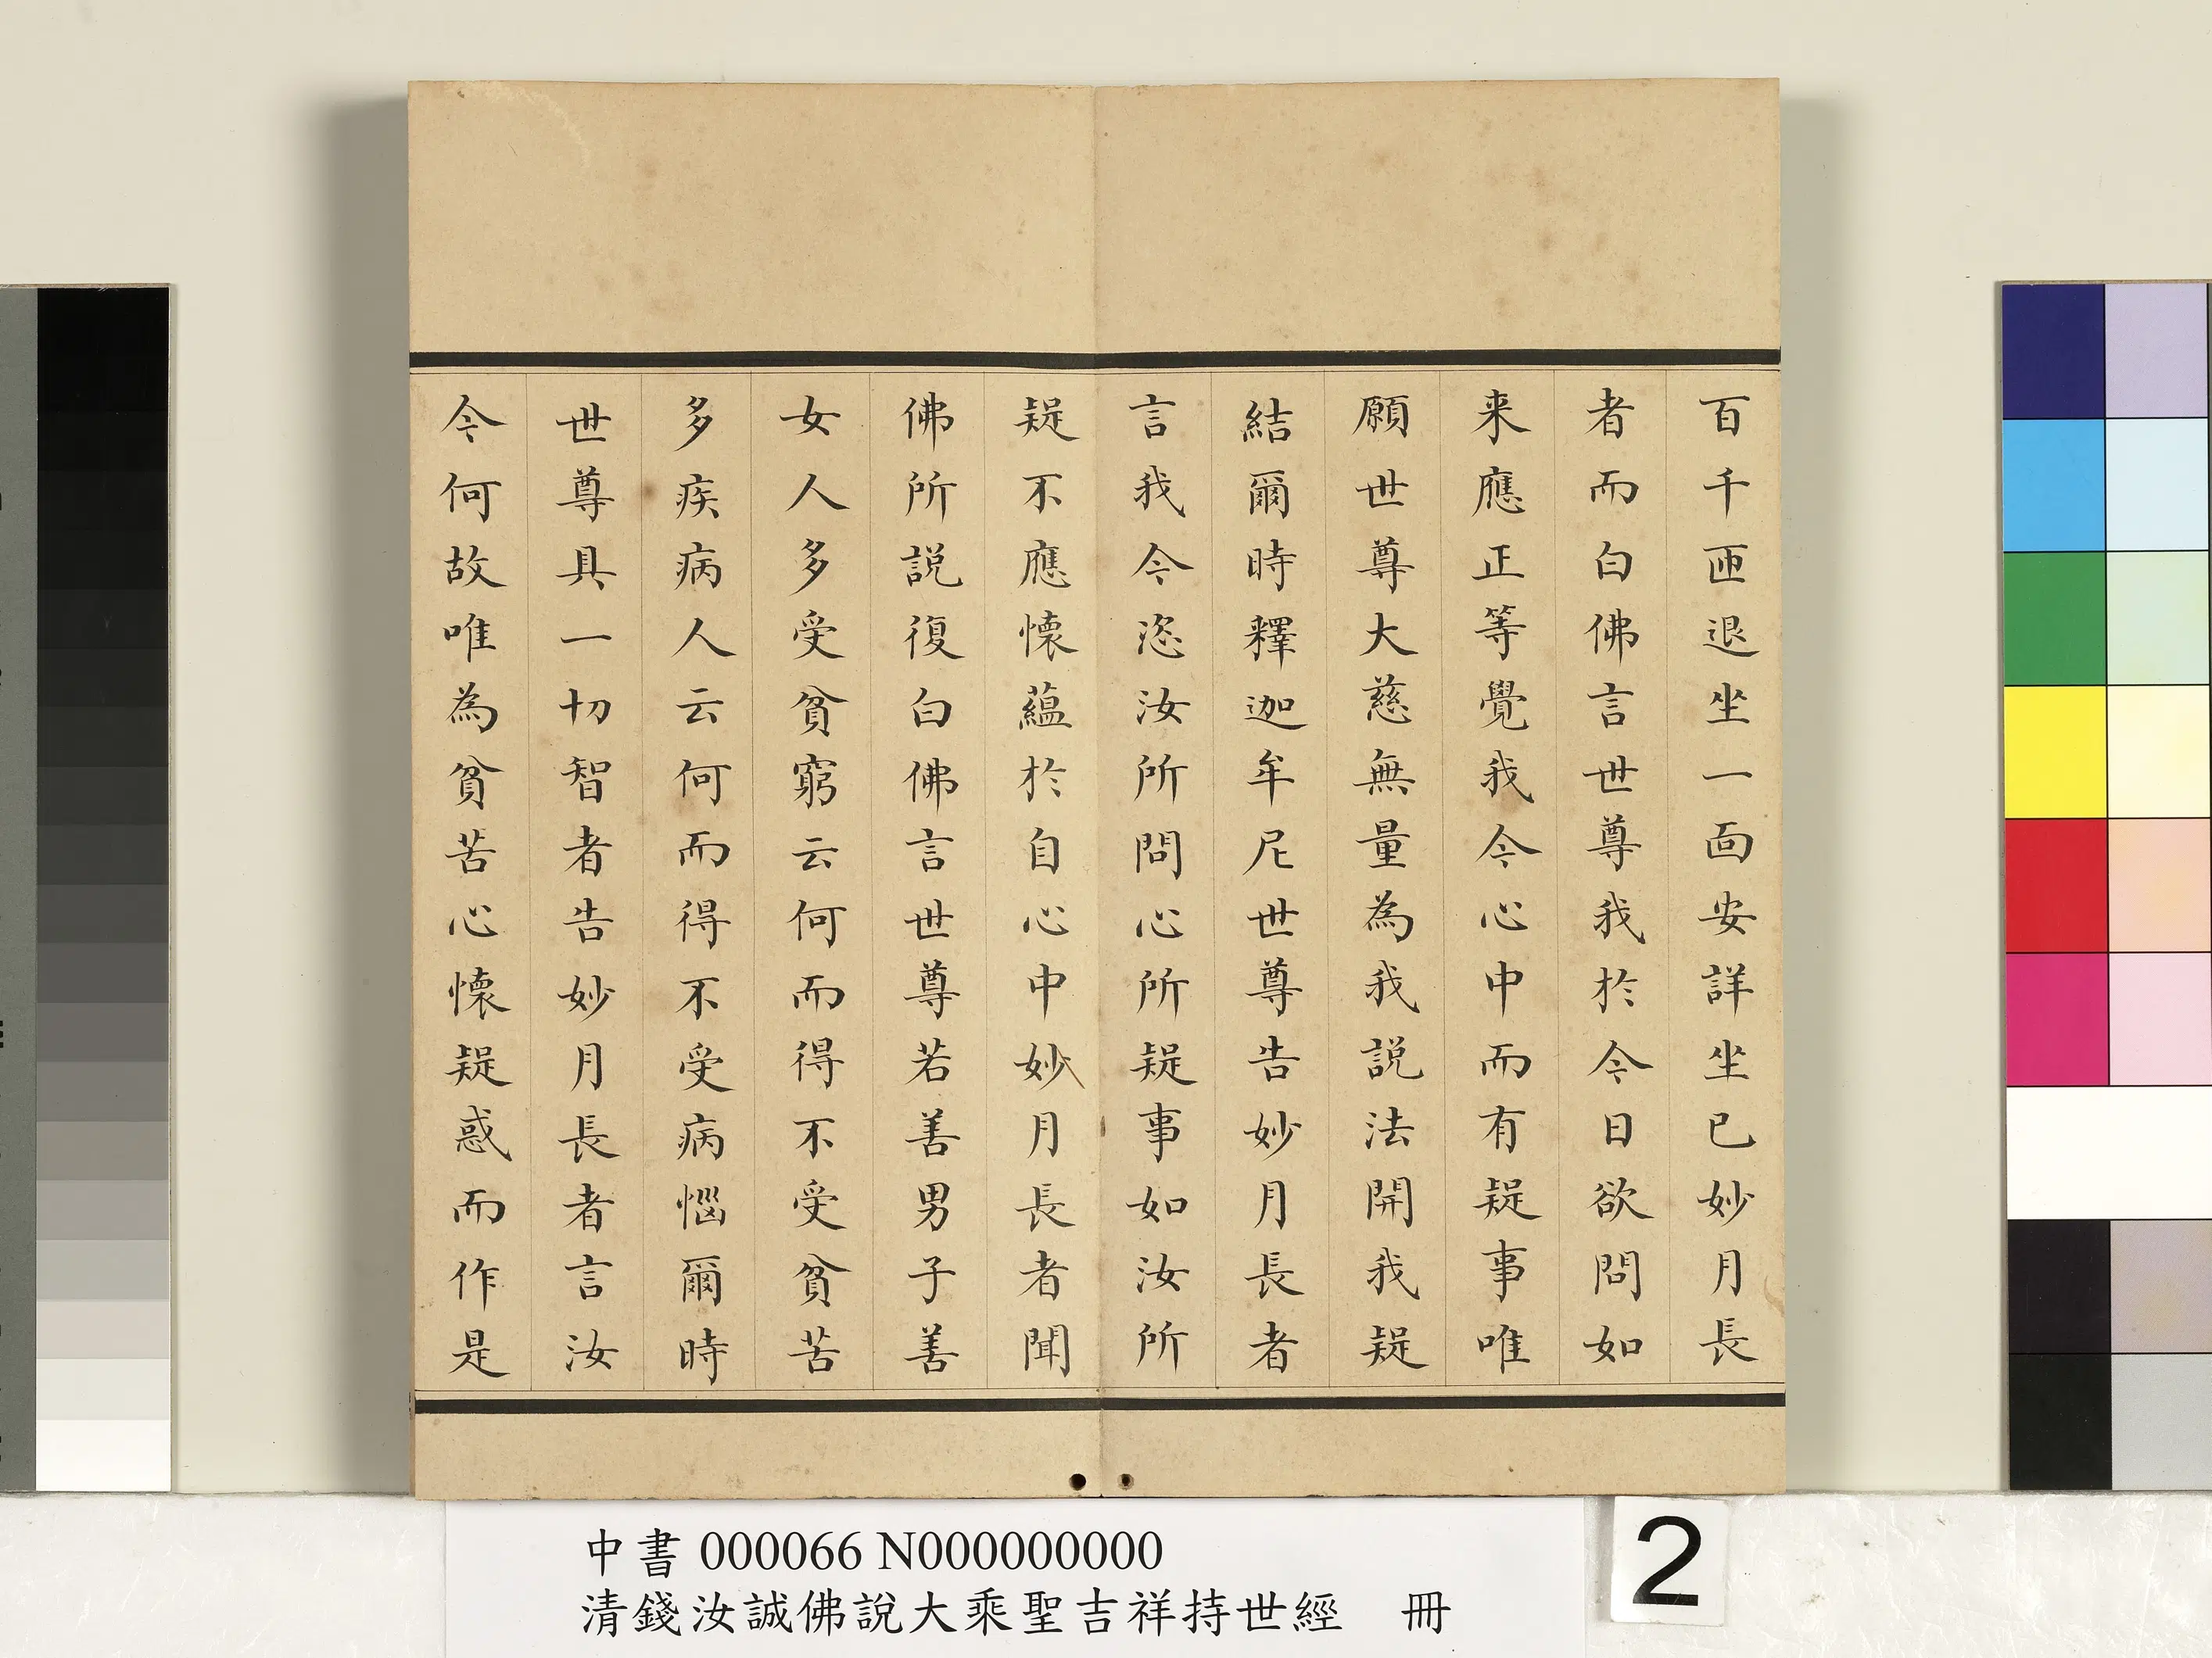 百千匝退坐一面安詳坐已妙月長
者而白佛言世尊我於今日欲問如
来應正等覺我今心中而有疑事唯
願世尊大慈無量為我説法開我疑
結爾時釋迦牟尼世尊告妙月長者
言我今恣汝所問心所疑事如汝所
疑不應懷蘊於自心中妙月長者聞
佛所説復白佛言世尊若善男子善
女人多受貧窮云何而得不受貧苦
多疾病人云何而得不受病惱爾時
世尊具一切智者告妙月長者言汝
今何故唯為貧苦心懷疑惑而作是
中書 000066 N000000000
清錢汝誠佛說大乘聖吉祥持世經 冊
2